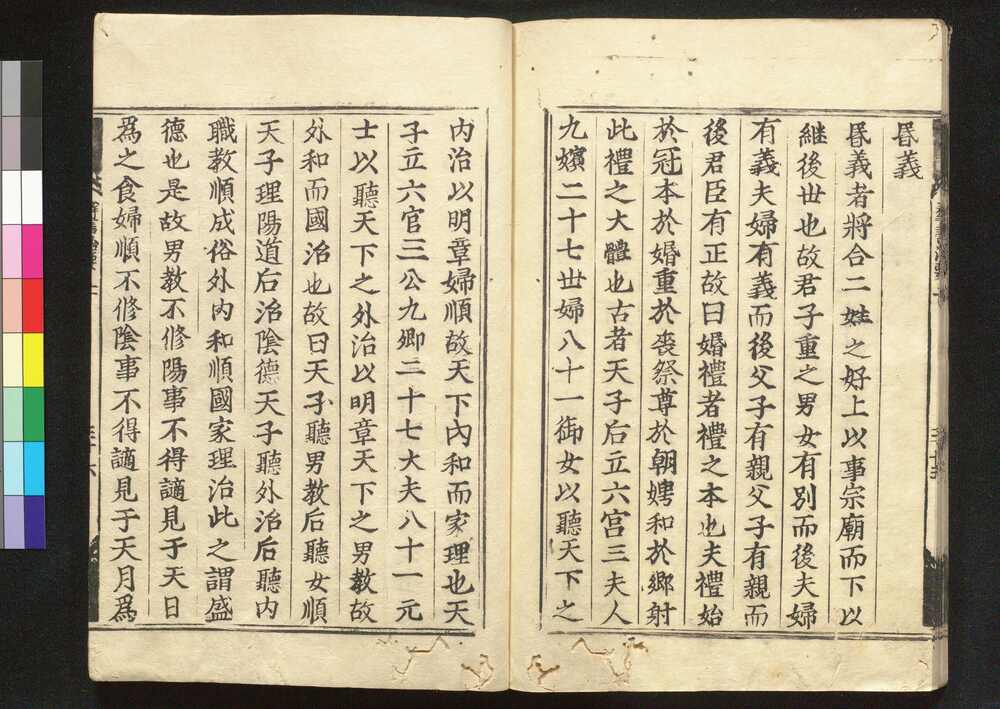 昬義
昬義者將合二姓之好上以事宗廟而下以
継後世也故君子重之男女有別而後夫婦
有義夫婦有義而後父子有親父子有親而
後君臣有正故曰婚禮者禮之本也夫禮始
於冠本於婚重於喪祭尊於朝娉和於鄉射
此禮之大體也古者天子后立六宮三夫人
九嬪二十七世婦八十一御女以聽天下之
內治以明章婦順故天下內和而家理也天
子立六官三公九卿二十七大夫八十一元
士以聽天下之外治以明章天下之男教故
外和而國治也故曰天子聽男教后聽女順
天子理陽道后治陰德天子聽外治后聽內
職教順成俗外內和順國家理治此之謂盛
德也是故男教不修陽事不得謫見于天日
為之食婦順不修陰事不得謫見于天月為